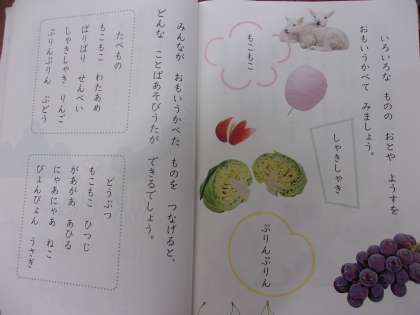 いろいろな ものの おとや ようすを
おもいうかべて みましょう。
もこもこ
しゃきしゃき
ぷりんぷりん
みんなが おもいうかべた ものを つなげると、
どんな ことばあそびうたが できるでしょう。
たべもの
もこもこ わたあめ
ぱりぱり せんべい
しゃきしゃき りんご
ぷりんぷりん ぶどう
どうぶつ
もこもこ ひつじ
があがあ あひる
にゃあにゃあ ねこ
ぴょんぴょん うさぎ